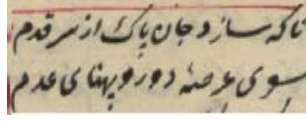 تا که سازد جان پاک از سر قدم
سوی عرصه دور و پهنای عدم